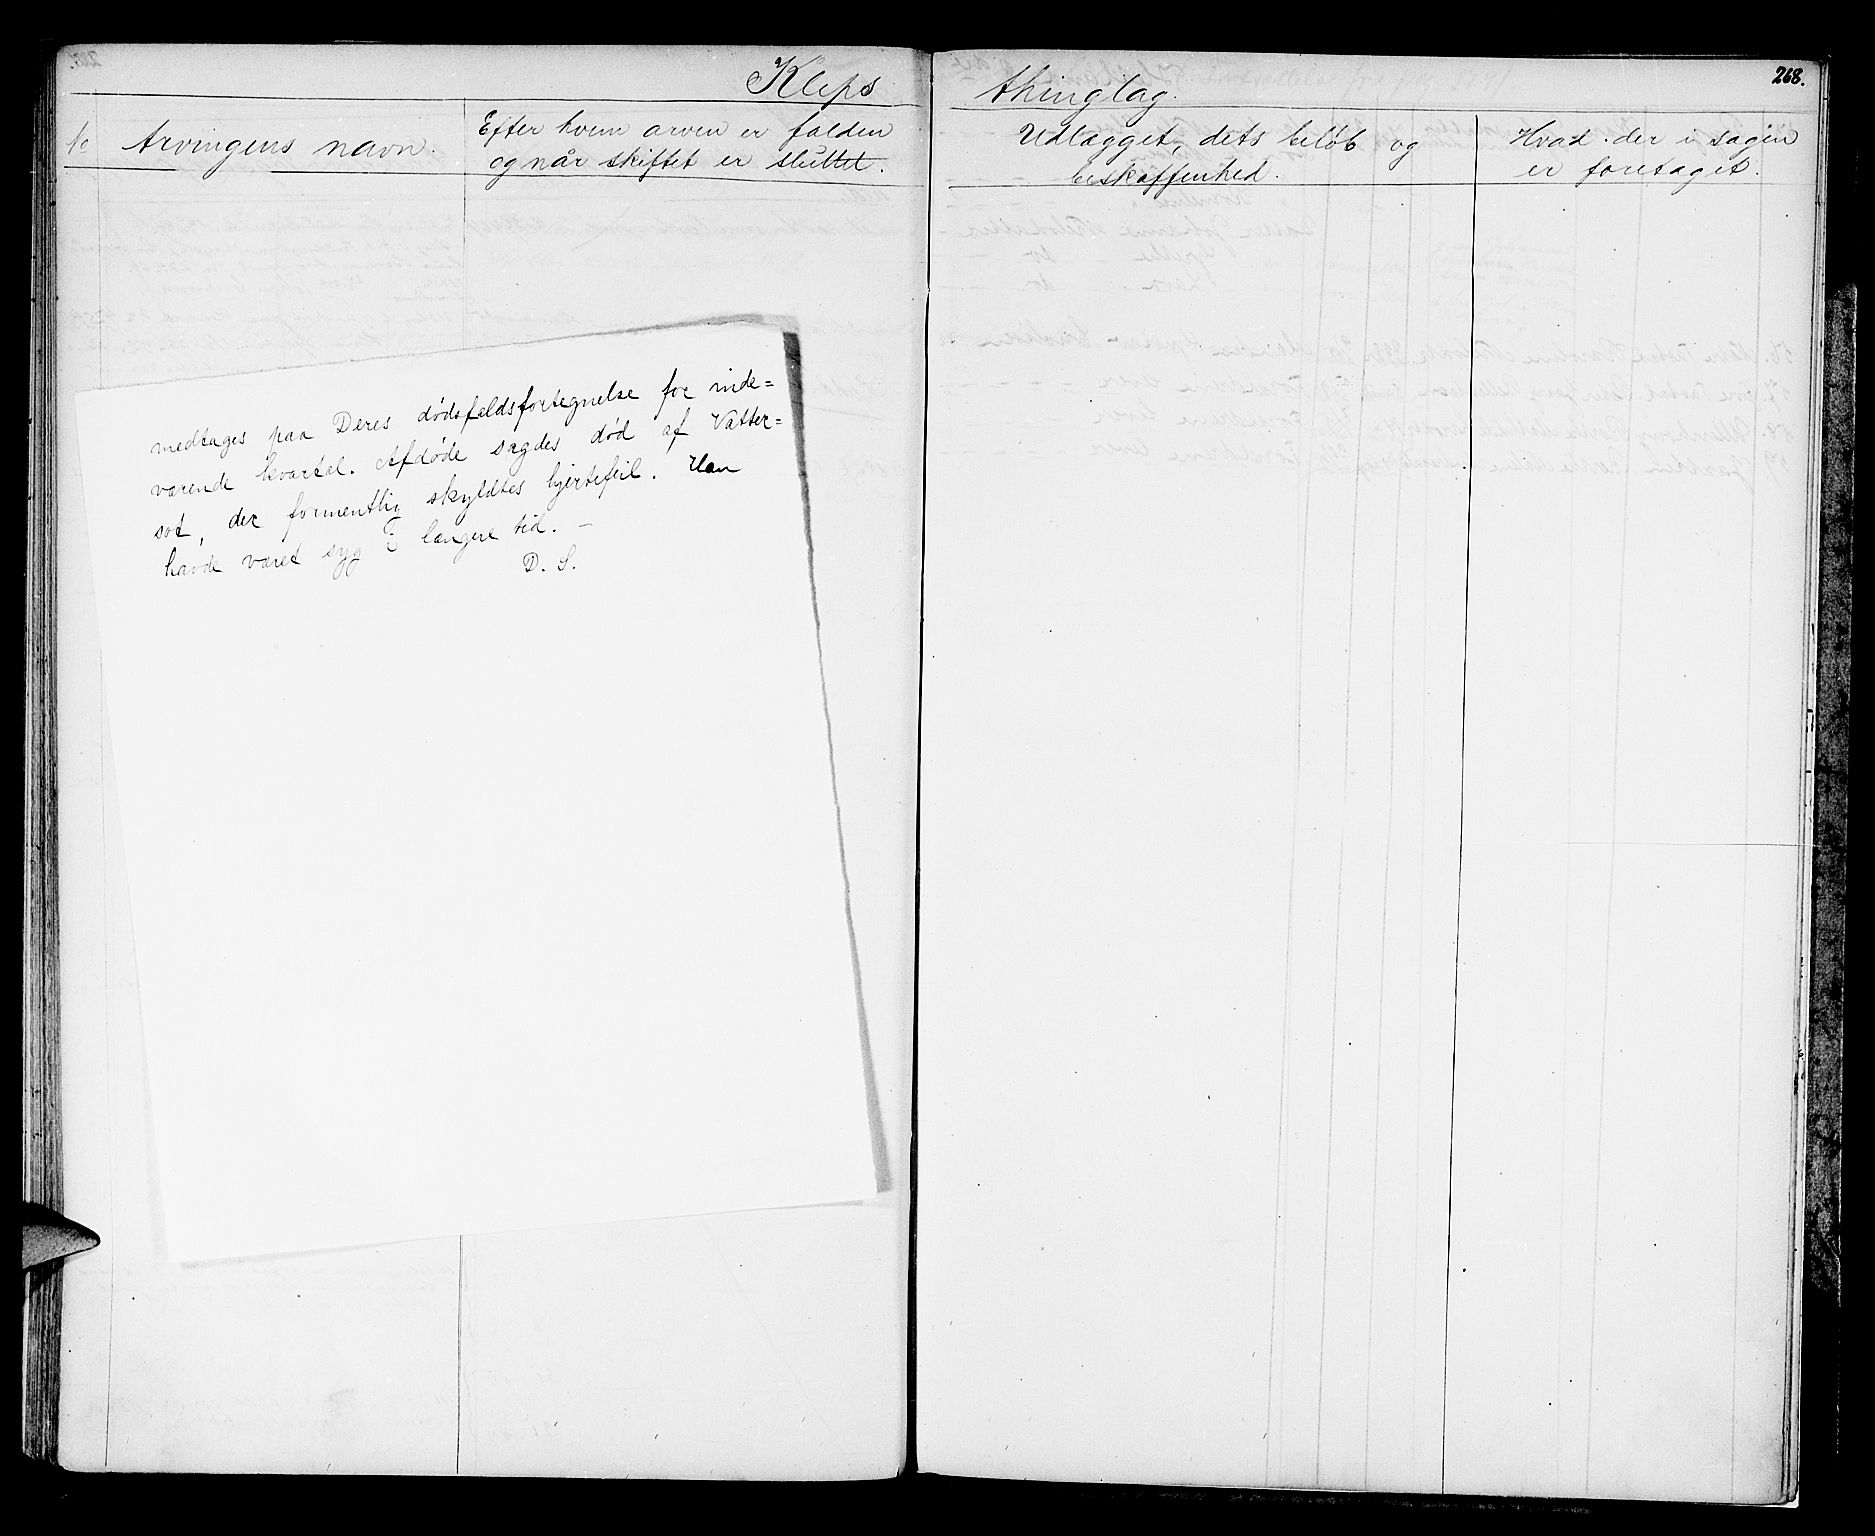 Kleps thinglag.
268.
No Arvingens navn.
Efter hvem arven er falden
og når skiftet er sluttet.
Udlægget, dets beløb og
beskaffenhed.
Hvad der i sagen
er foretaget.
medtages paa Deres dødsfaldsfortegnelse for inde=
værende kvartal. Afdøde sagdes død af Vatter=
sot, der formentlig skyldtes hjertefeil. Han
havde været syg i længere tid. –
D. S.